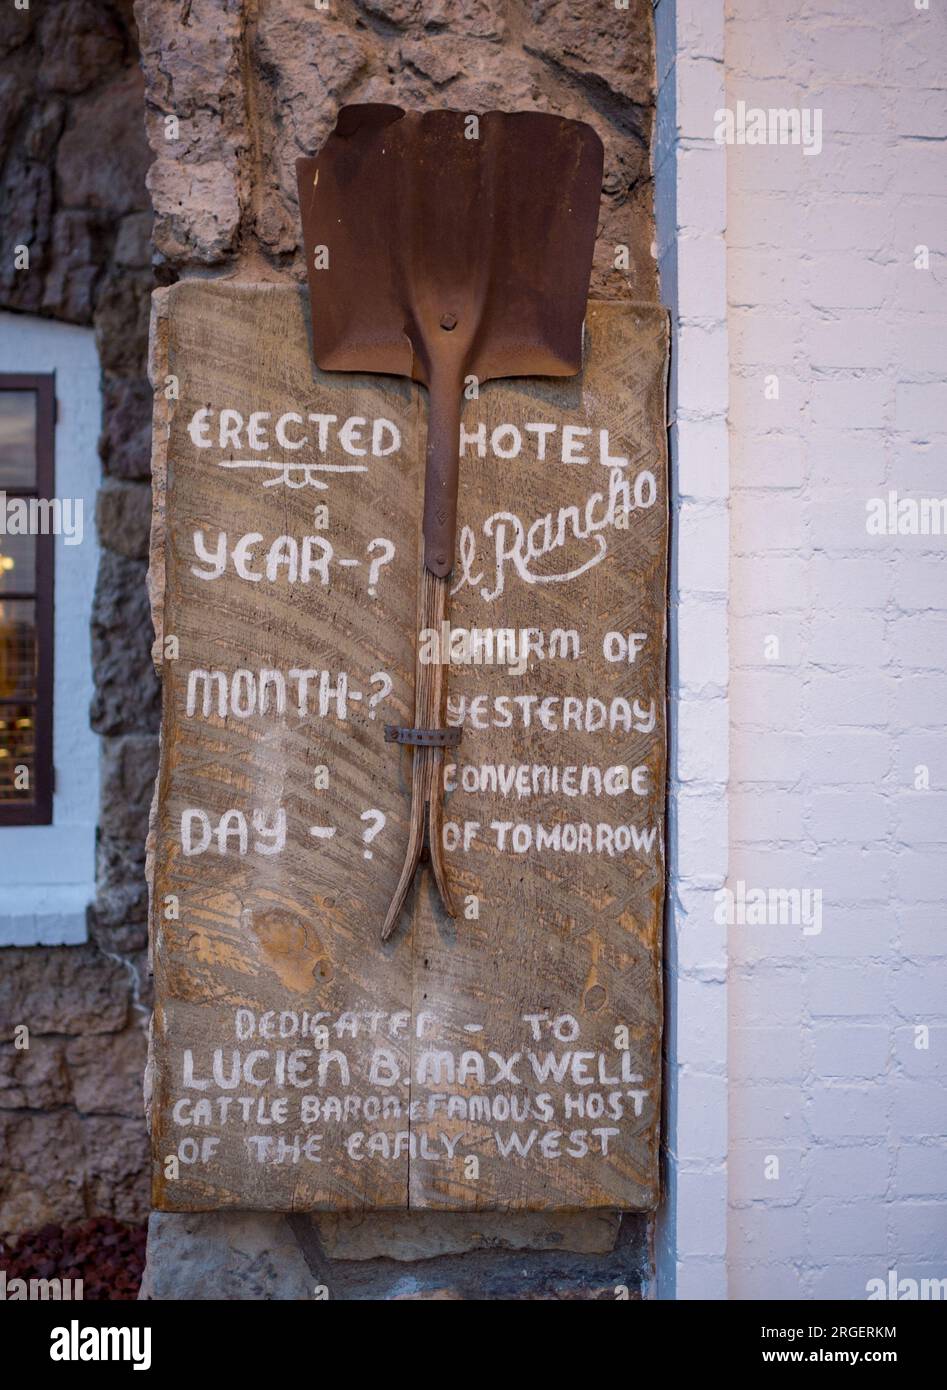 ERECTED
YEAR-?
MONTH-?
DAY - ?
HOTEL
El Rancho
CHARM OF
YESTERDAY
CONVENIENCE
OF TOMORROW
DEDICATED - TO
LUCIEN B. MAXWELL
CATTLE BARON & FAMOUS HOST
OF THE EARLY WEST
alamy
Image ID: 2RGERKM
www.alamy.com